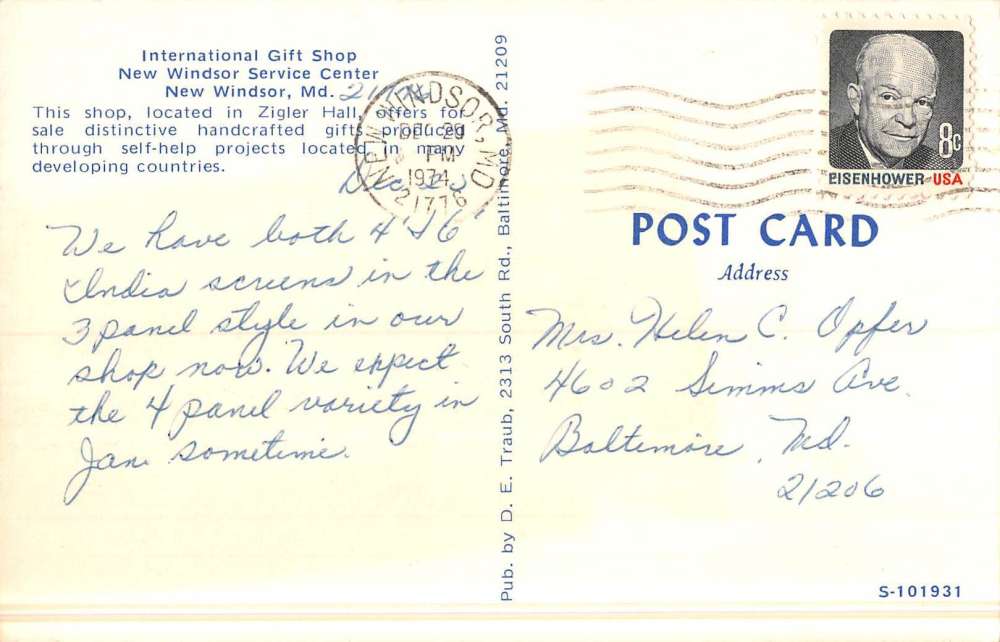 International Gift Shop
New Windsor Service Center
New Windsor, Md. 21776
This shop, located in Zigler Hall, offers for
sale distinctive handcrafted gifts produced
through self-help projects located in many
developing countries.
Dec
We have both 4' & 6'
India screens in the
3 panel style in our
shop now. We expect
the 4 panel variety in
Jan. sometime.
Pub. by D. E. Traub, 2313 South Rd., Baltimore, Md. 21209
NEW WINDSOR, MD
DEC 29
PM
1974
21776
8c
EISENHOWER·USA
POST CARD
Address
Mrs. Helen C. Opfer
4602 Simms Ave.
Baltimore, Md.
21206
S-101931